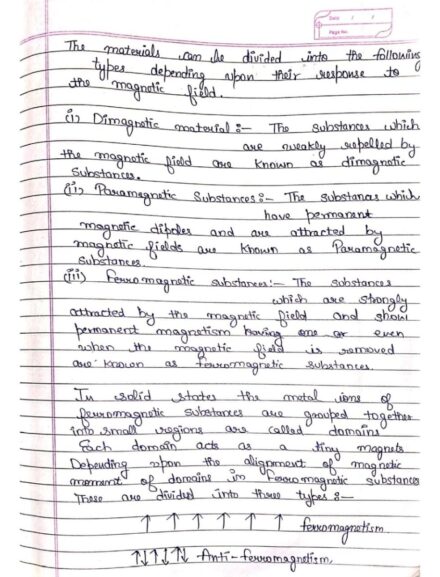 Date / /
Page No.
The materials can be divided into the following
types depending upon their response to
the magnetic field.
(i) Dimagnetic material :- The substances which
are weakly repelled by
the magnetic field are known as dimagnetic
substances.
(ii) Paramagnetic Substances :- The substances which
have permanant
magnetic dipoles and are attracted by
magnetic fields are known as Paramagnetic
substances.
(iii) Ferromagnetic substances :- The substances
which are strongly
attracted by the magnetic field and show
permanent magnetism having one or even
when the magnetic field is removed
are known as ferromagnetic substances.
In solid states the metal ions of
ferromagnetic substances are grouped together
into small regions are called domains
Each domain acts as a tiny magnets
Depending upon the alignment of magnetic
moment of domains in ferromagnetic substances
These are divided into three types :-
↑ ↑ ↑ ↑ ↑ ↑ ↑ ferromagnetism.
↑↓↑↓↑↓ Anti-ferromagnetism.